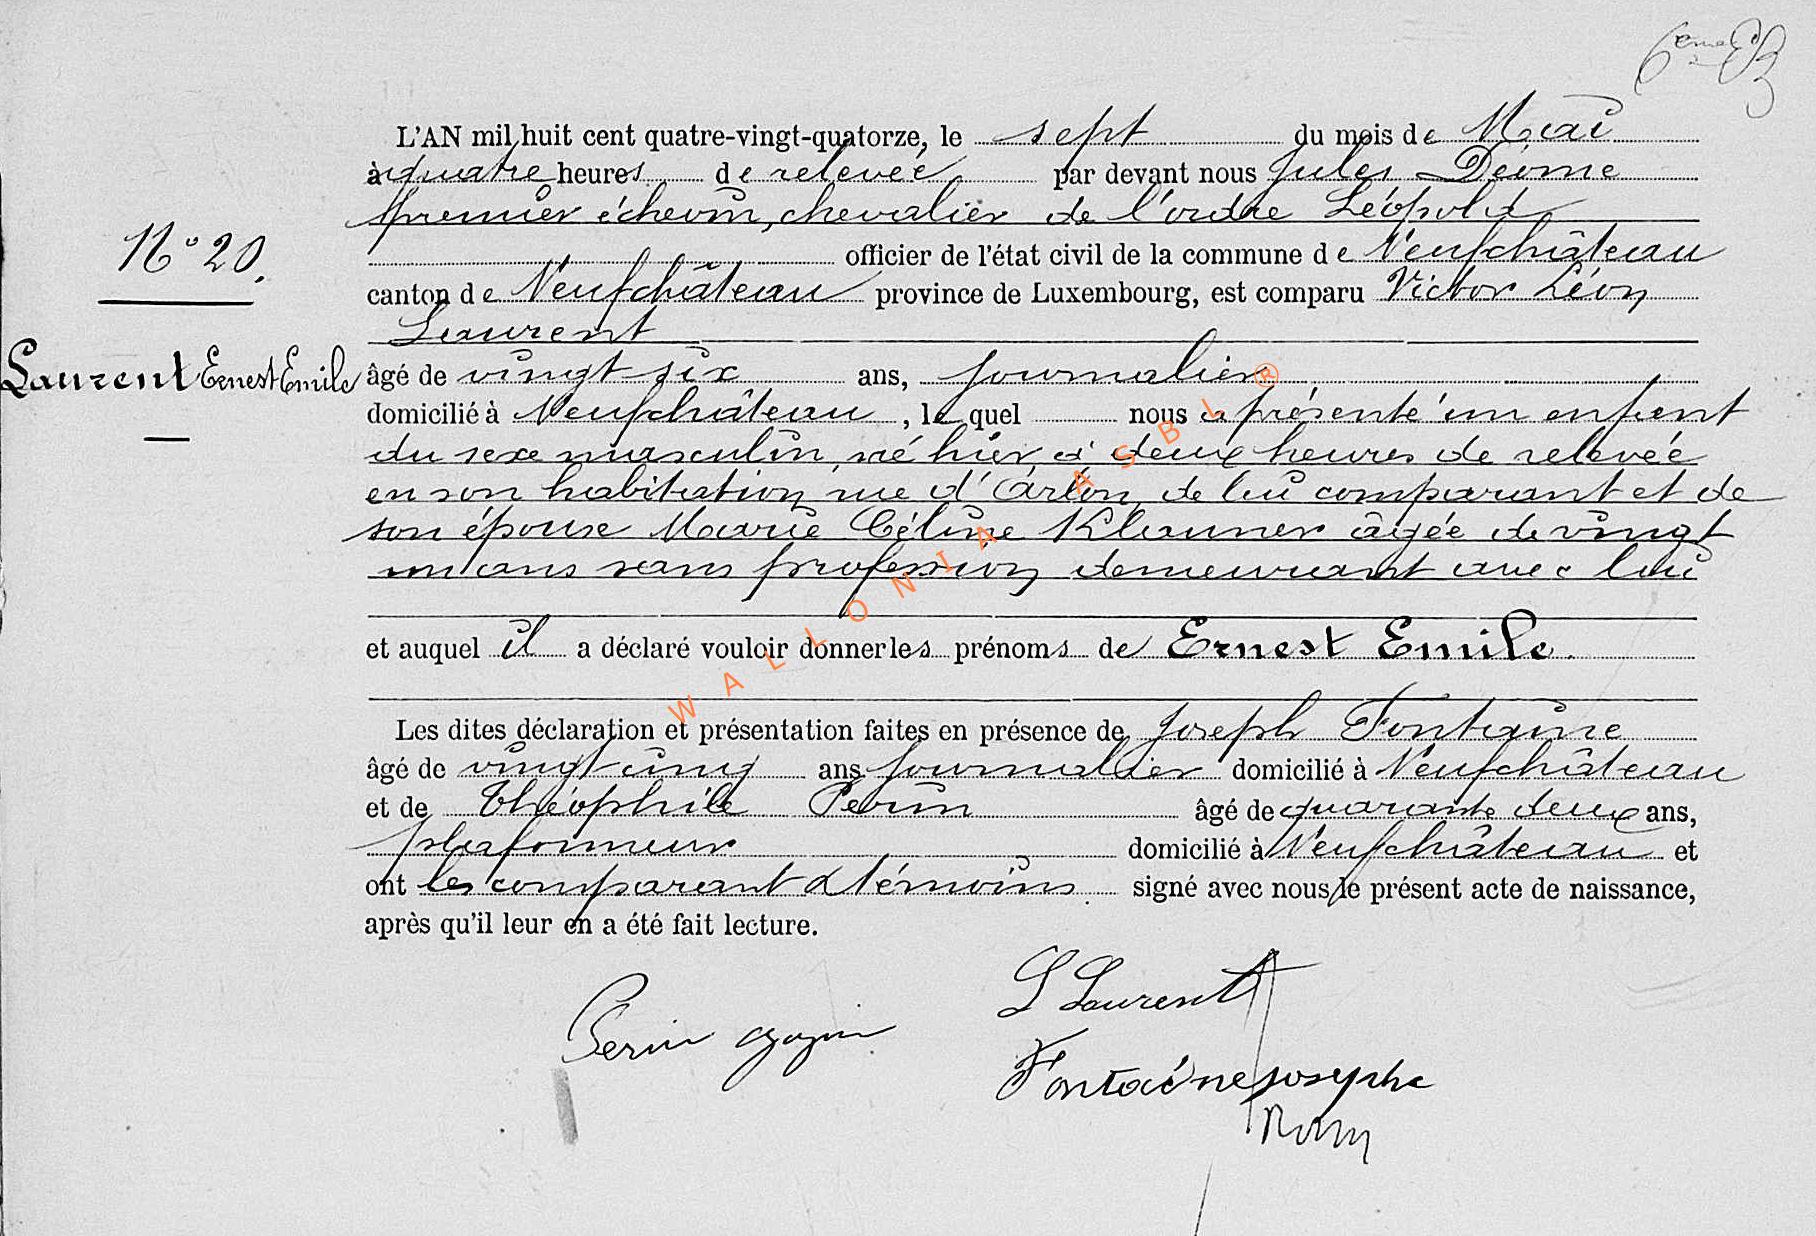 L'AN mil huit cent quatre-vingt-quatorze, le sept du mois de Mai
à quatre heures de relevée par devant nous Jules Déome
premier échevin, chevalier de l'ordre Léopold
N° 20.
officier de l'état civil de la commune de Neufchâteau
canton de Neufchâteau province de Luxembourg, est comparu Victor Léon
Laurent
Laurent Ernest Emile
âgé de vingt six ans, journalier
domicilié à Neufchâteau, lequel nous a présenté un enfant
du sexe masculin, né hier à deux heures de relevée
en son habitation, rue d'Arlon, de lui comparant et de
son épouse Marie Céline Klauner âgée de vingt
un ans sans profession demeurant avec lui
et auquel il a déclaré vouloir donner les prénoms de Ernest Emile.
Les dites déclaration et présentation faites en présence de Joseph Fontaine
âgé de vingt cinq ans journalier domicilié à Neufchâteau
et de Théophile Perin âgé de quarante deux ans,
plafonneur domicilié à Neufchâteau et
ont les comparant & témoins signé avec nous le présent acte de naissance,
après qu'il leur en a été fait lecture.
L Laurent
Perin
Fontaine josephe
WALLONIA ASBL ®